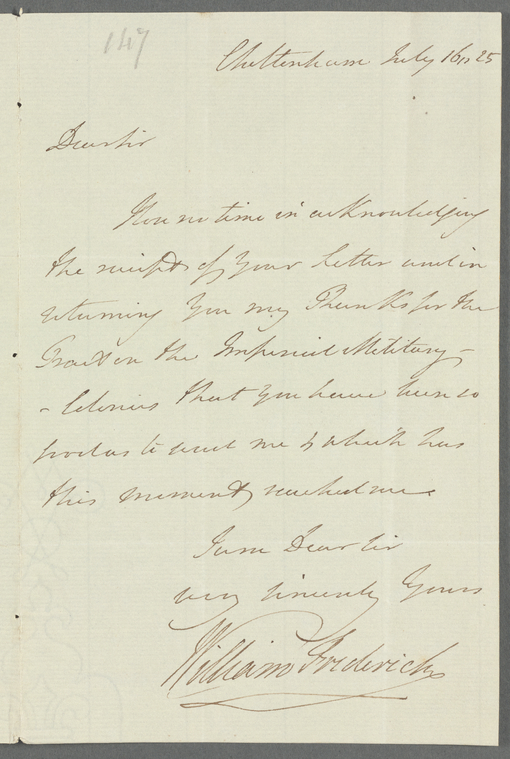 147
Cheltenham July 16,, 25
Dear Sir
I lose no time in acknowledging
the receipt of your letter and in
returning you my Thanks for the
Tract on the Imperial Military –
– Colonies that you have been so
good as to send me & which has
this moment reached me
I am Dear Sir
very sincerely Yours
William Frederick